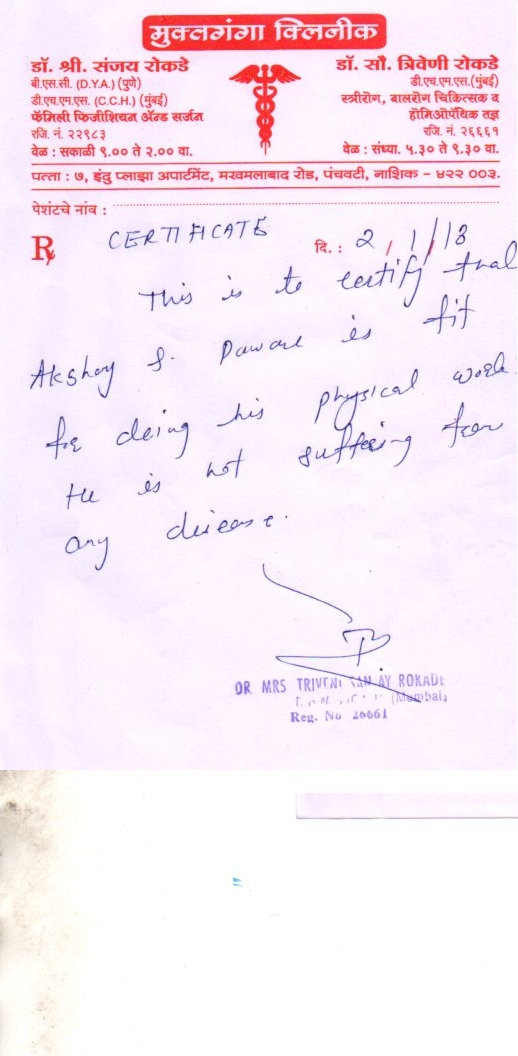 मुक्तगंगा क्लिनीक
डॉ. श्री. संजय रोकडे
बी.एस.सी. (D.Y.A.) (पुणे)
डी.एच.एम.एस. (C.C.H.) (मुंबई)
फॅमिली फिजीशियन ॲन्ड सर्जन
रजि. नं. २२९८३
वेळ : सकाळी ९.०० ते २.०० वा.
डॉ. सौ. त्रिवेणी रोकडे
डी.एच.एम.एस.(मुंबई)
स्त्रीरोग, बालरोग चिकित्सक व
होमिओपॅथिक तज्ञ
रजि. नं. २६६६१
वेळ : संध्या. ५.३० ते ९.३० वा.
पत्ता : ७, इंदु प्लाझा अपार्टमेंट, मखमलाबाद रोड, पंचवटी, नाशिक - ४२२ ००३.
पेशंटचे नांव :
CERTIFICATE
दि. : 2/1/13
This is to certify that
Akshay S. Paware is fit
for doing his physical work.
He is not suffering from
any disease.
DR MRS TRIVENI SANJAY ROKADE
(Mumbai)
Reg. No 26661